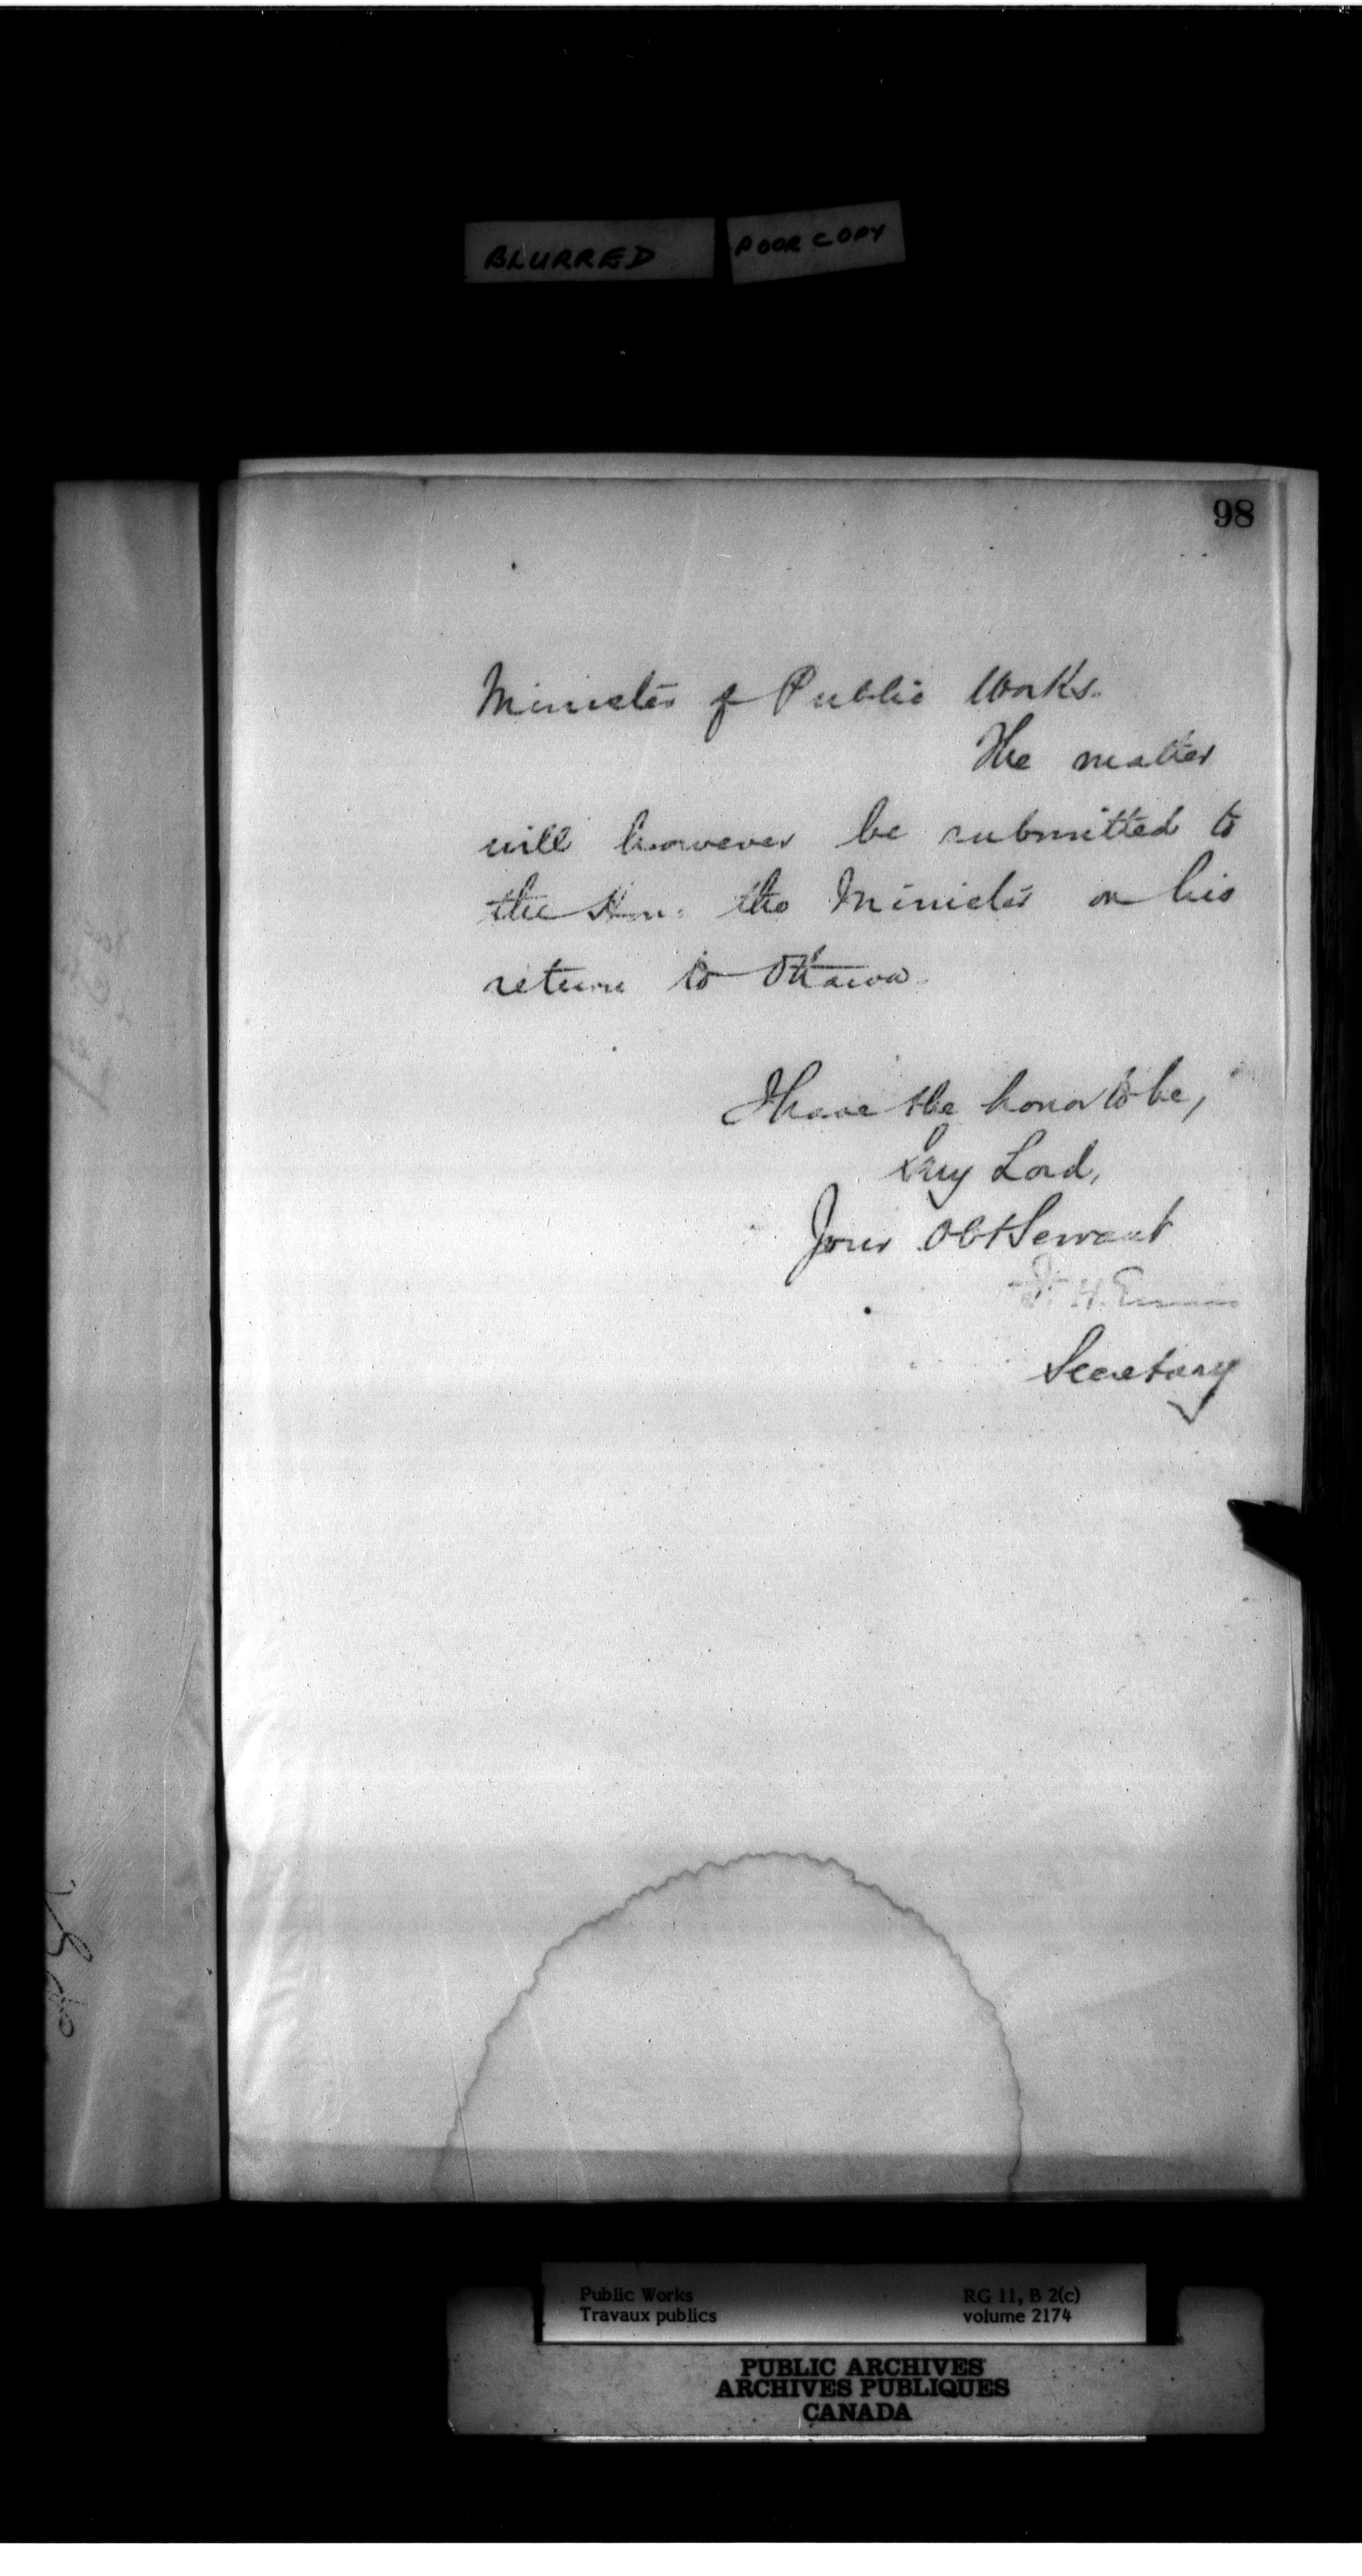 BLURRED POOR COPY
98
Minister of Public Works.
The matter
will however be submitted to
the Hon: the Minister on his
return to Ottawa.
I have the honor to be,
My Lord,
Your Obt Servant
F. H. Ennis
Secretary
Public Works RG 11, B 2(c)
Travaux publics volume 2174
PUBLIC ARCHIVES
ARCHIVES PUBLIQUES
CANADA